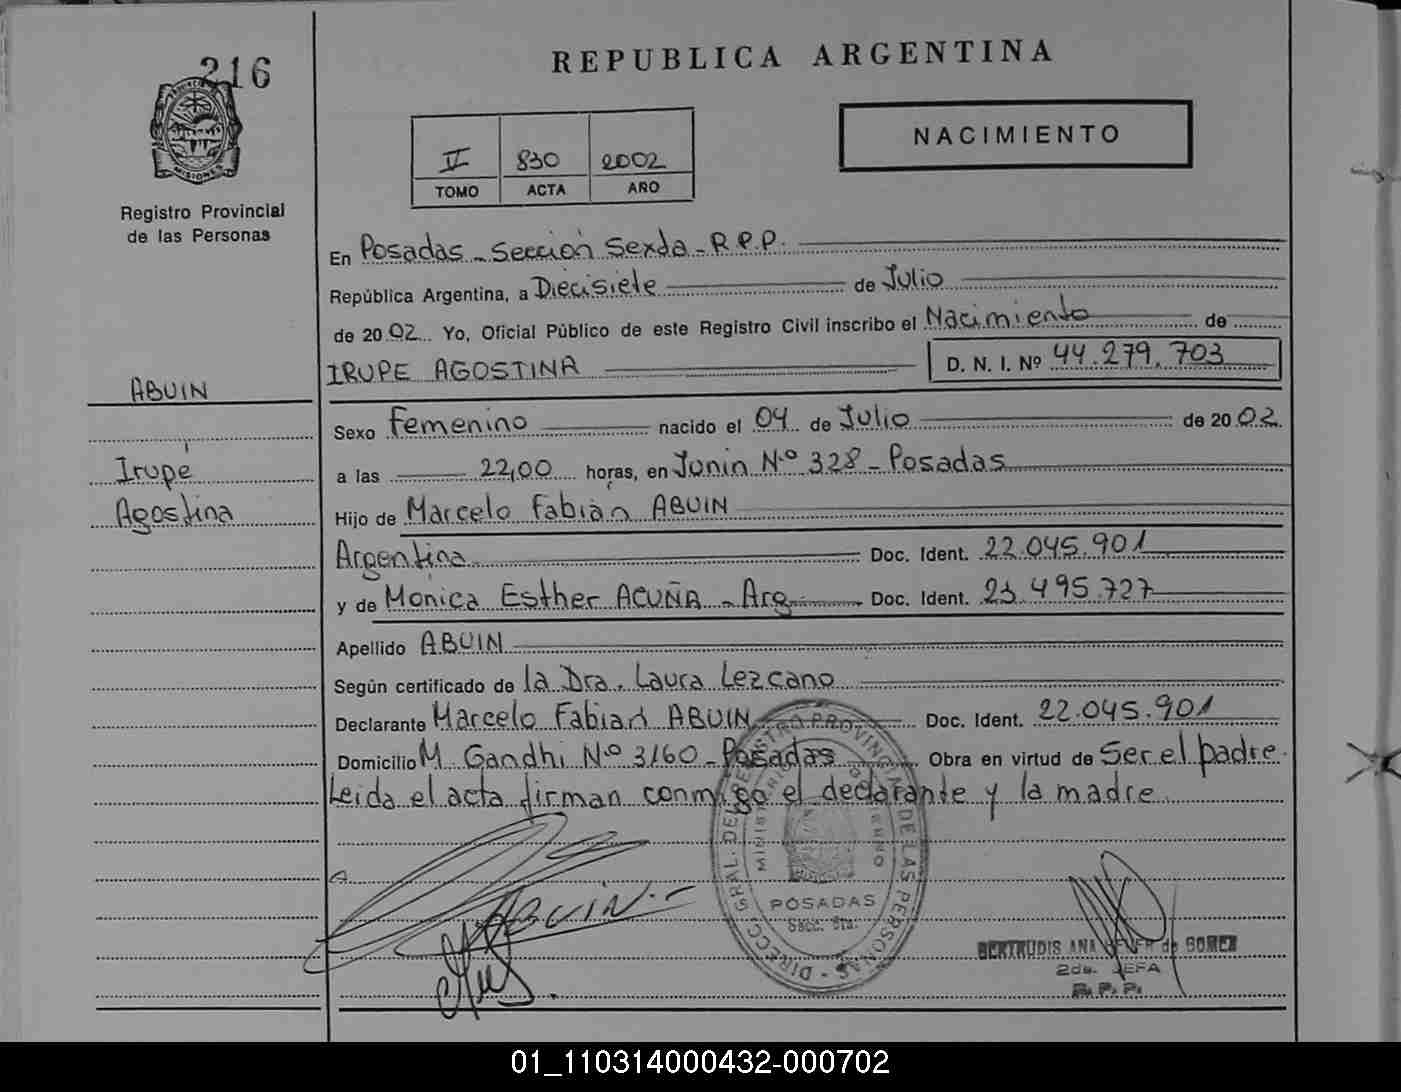 216
REPUBLICA ARGENTINA
MISIONES
Registro Provincial
de las Personas
II 830 2002
TOMO ACTA AÑO
NACIMIENTO
En Posadas - Sección Sexta - R.P.P.
República Argentina, a Diecisiete de Julio
de 2002 Yo, Oficial Público de este Registro Civil inscribo el Nacimiento de
IRUPE AGOSTINA D. N. I. Nº 44.279.703
ABUIN
Irupé
Agostina
Sexo Femenino nacido el 04 de Julio de 2002.
a las 22,00 horas, en Junin N.º 328 - Posadas
Hijo de Marcelo Fabián ABUIN
Argentina Doc. Ident. 22.045.901
y de Mónica Esther ACUÑA - Arg Doc. Ident. 23.495.727
Apellido ABUIN
Según certificado de la Dra. Laura Lezcano
Declarante Marcelo Fabian ABUIN Doc. Ident. 22.045.901
Domicilio M. Gandhi N.º 3160 - Posadas Obra en virtud de Ser el padre.
Leida el acta firman conmigo el declarante y la madre
ABUIN
DIRECC. GRAL. DEL REGISTRO PROVINCIAL DE LAS PERSONAS
POSADAS
Secc. 6ta.
GERTRUDIS ANA de GOMEZ
2da. JEFA
R. P. P.
01_110314000432-000702